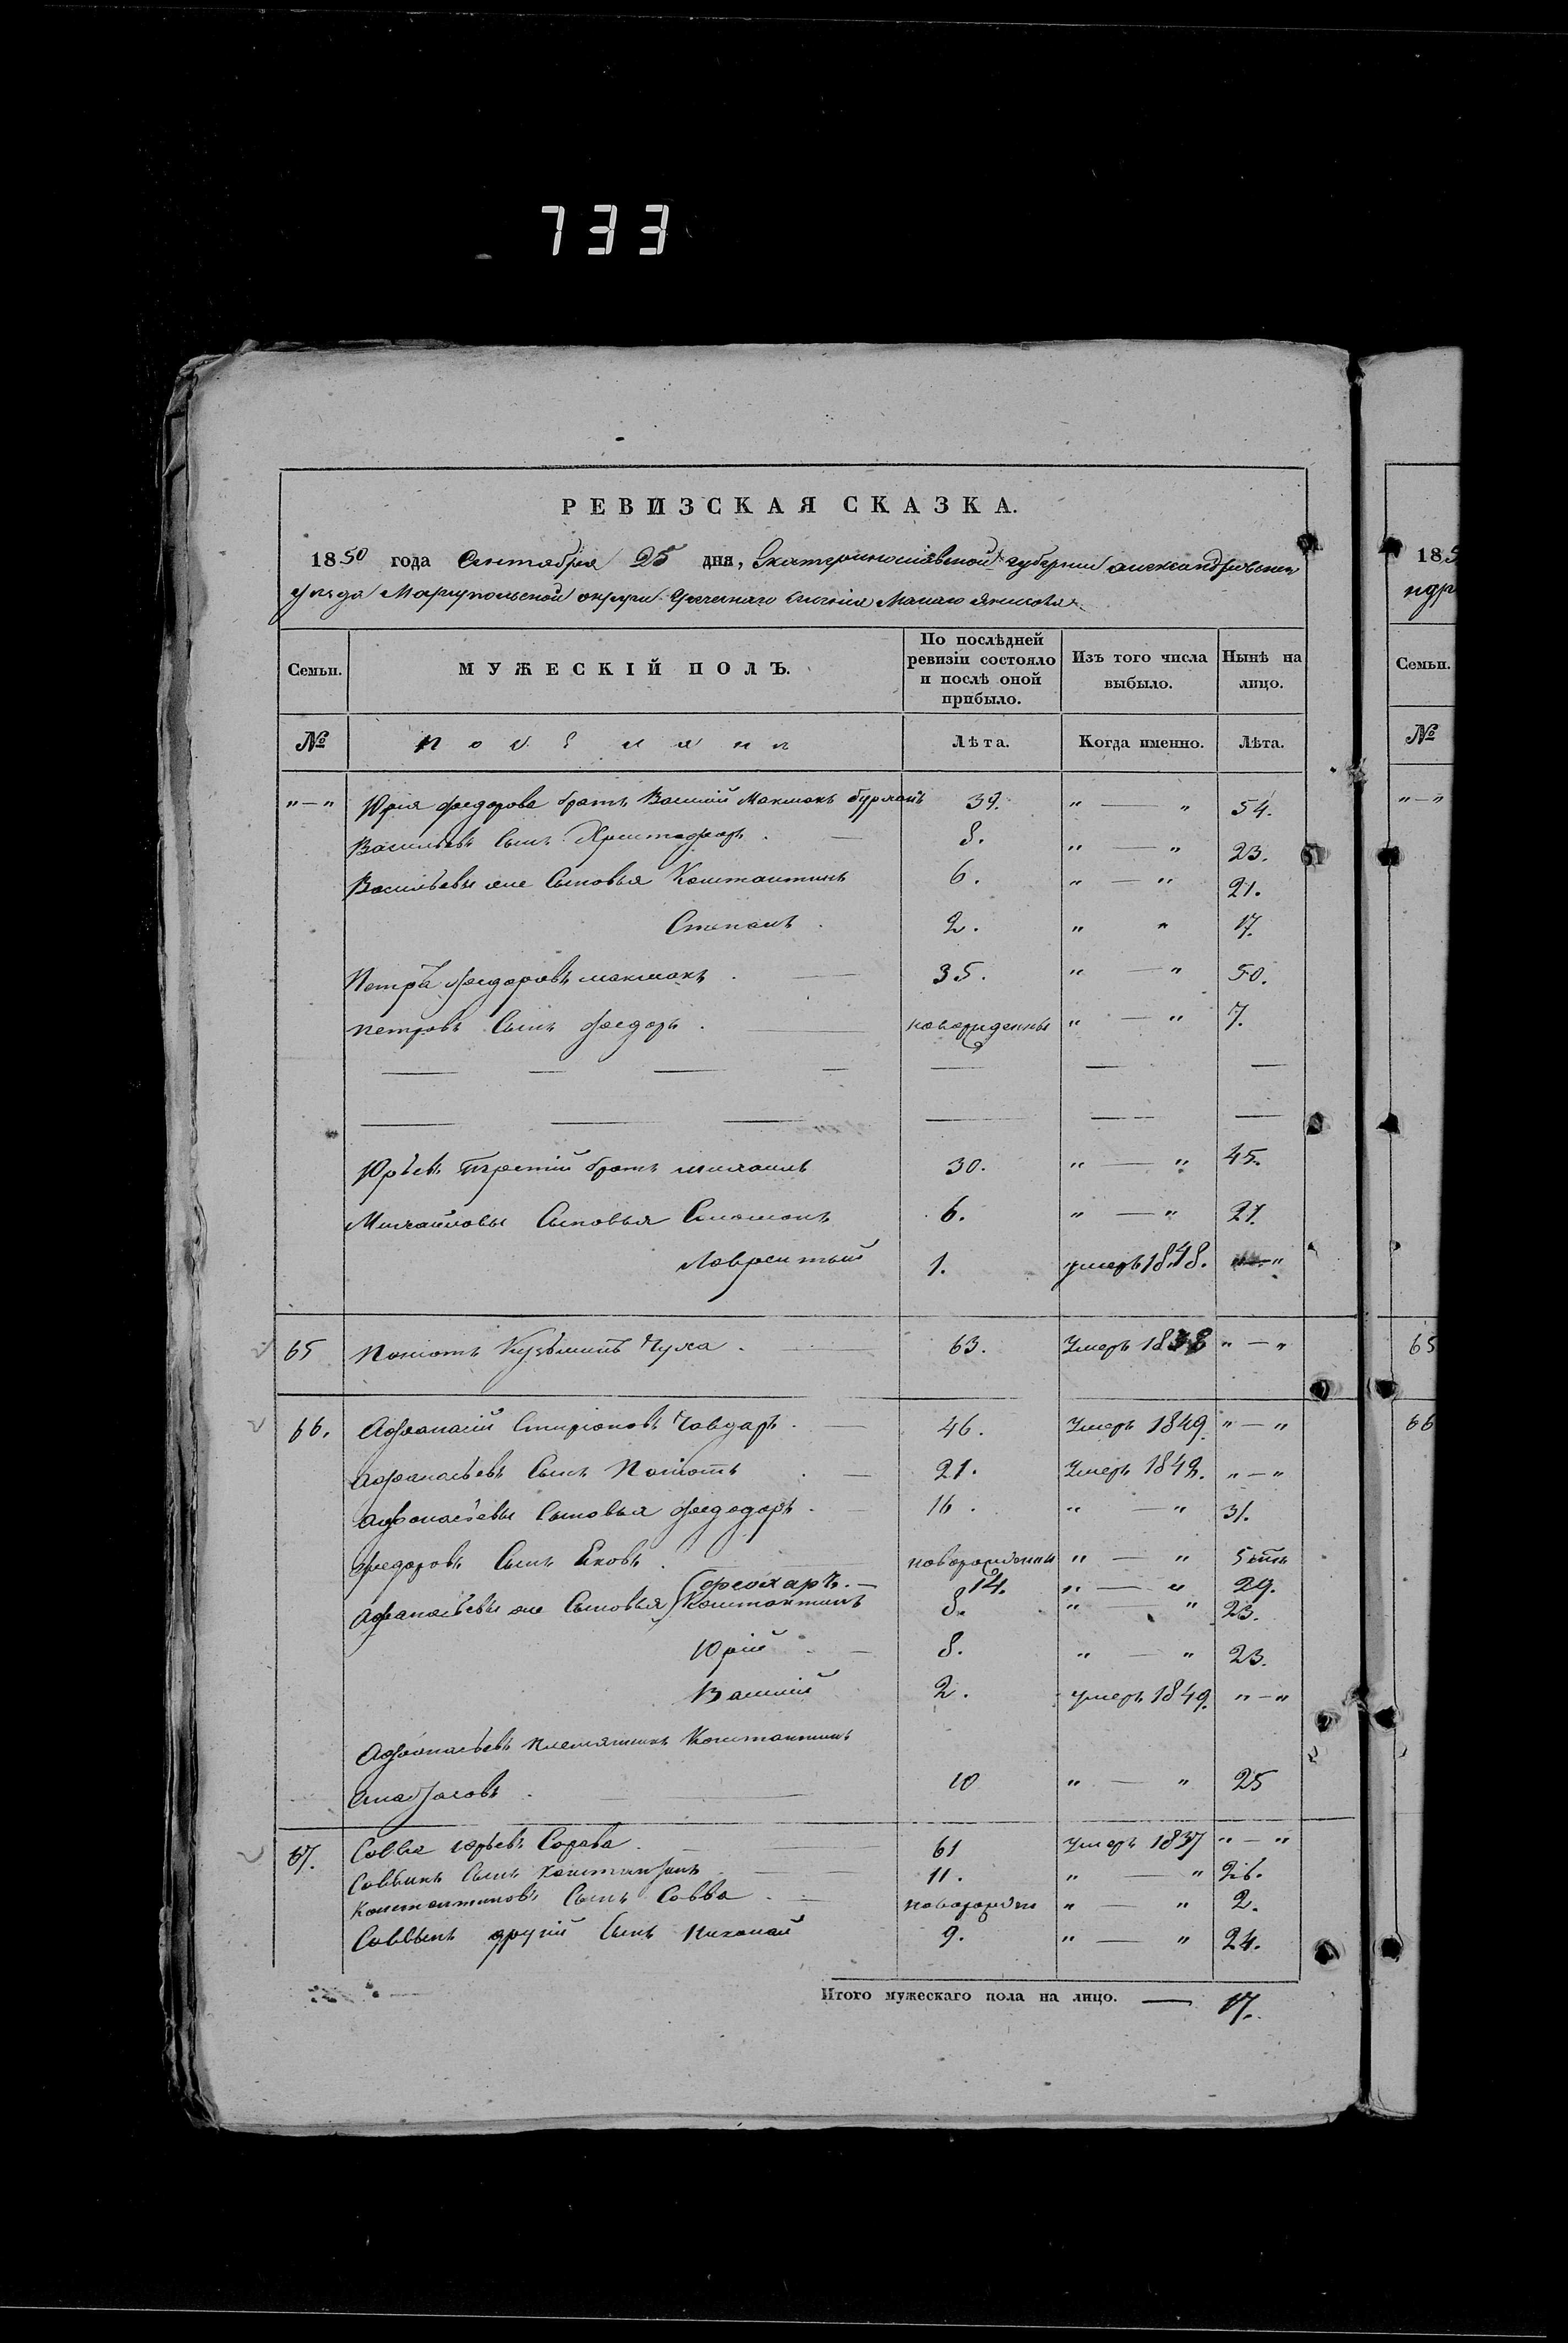 733
РЕВИЗСКАЯ СКАЗКА.
1850 года Сентября 25 дня, Екатеринославской губернии александровскаго
уезда Мариупольской округи Греческаго селенія Малаго Янисоля
Семьи. МУЖЕСКІЙ ПОЛЪ. По послѣдней ревизіи состояло и послѣ оной прибыло. Изъ того числа выбыло. Нынѣ на лицо.
№ поселяни Лѣта. Когда именно. Лѣта.
"—" Юрія федорова братъ Василій Макмакъ 39. "—" 54.
Васильевъ Сынъ Христофоръ. — 8. "—" 23.
Васильевы же Сыновья Константинъ 6. "—" 21.
Степанъ. 2. " " 17.
Петръ федоровъ макмакъ. — 35. "—" 50.
петровъ Сынъ федоръ. — новорожденны "—" 7.
Юрьевъ третій братъ михаилъ 30. "—" 45.
Михайловы Сыновья 6. "—" 21.
Лаврентый 1. умеръ 1848. "—"
65 Кузьминъ Чуха. — 63. Умеръ "—"
66. Афанасій Спиріоновъ Чавдаръ. — 46. Умеръ 1849. "—"
Афанасьевъ Сынъ . — 21. Умеръ "—"
Афанасьевы Сыновья федодоръ. — 16. "—" 31.
федоровъ Сынъ Яковъ. новорожденны "—" 5
феохаръ. — 14. "—" 29.
Афанасьевы же Сыновья Константинъ 8. "—" 23.
Юрій. — 8. "—" 23.
Василій 2. умеръ 1849. "—"
Афанасьевъ племянникъ Константинъ
10 "—" 25
67. Савва юрьевъ . — 61 умеръ 1837 "—"
Саввинъ Сынъ Константинъ. — 11. "—" 26.
Константиновъ Сынъ Савва. — "—" 2.
Саввинъ другій Сынъ Николай 9. "—" 24.
Итого мужескаго пола на лицо. — 17.
185
ндр
Семьи.
№
"—"
65
66